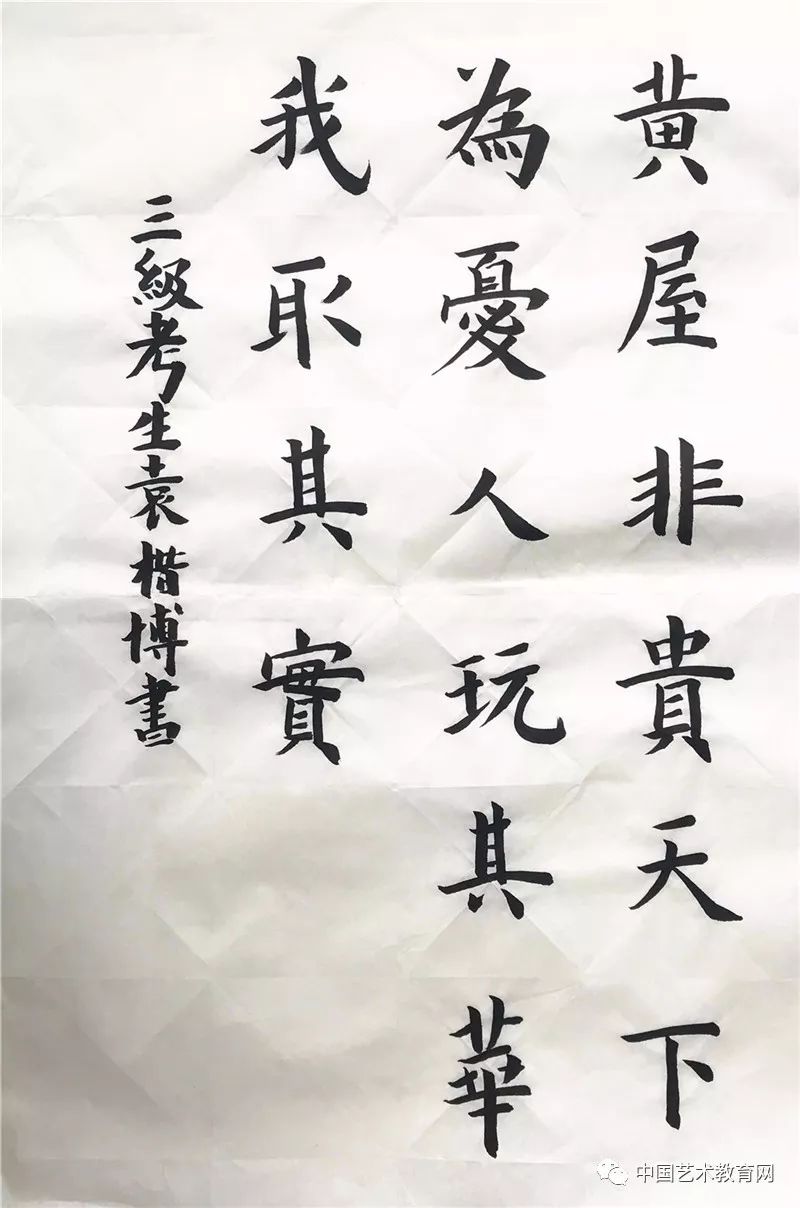 黄屋非貴天下
為憂人玩其華
我取其實
三級考生袁楷博書
中国艺术教育网